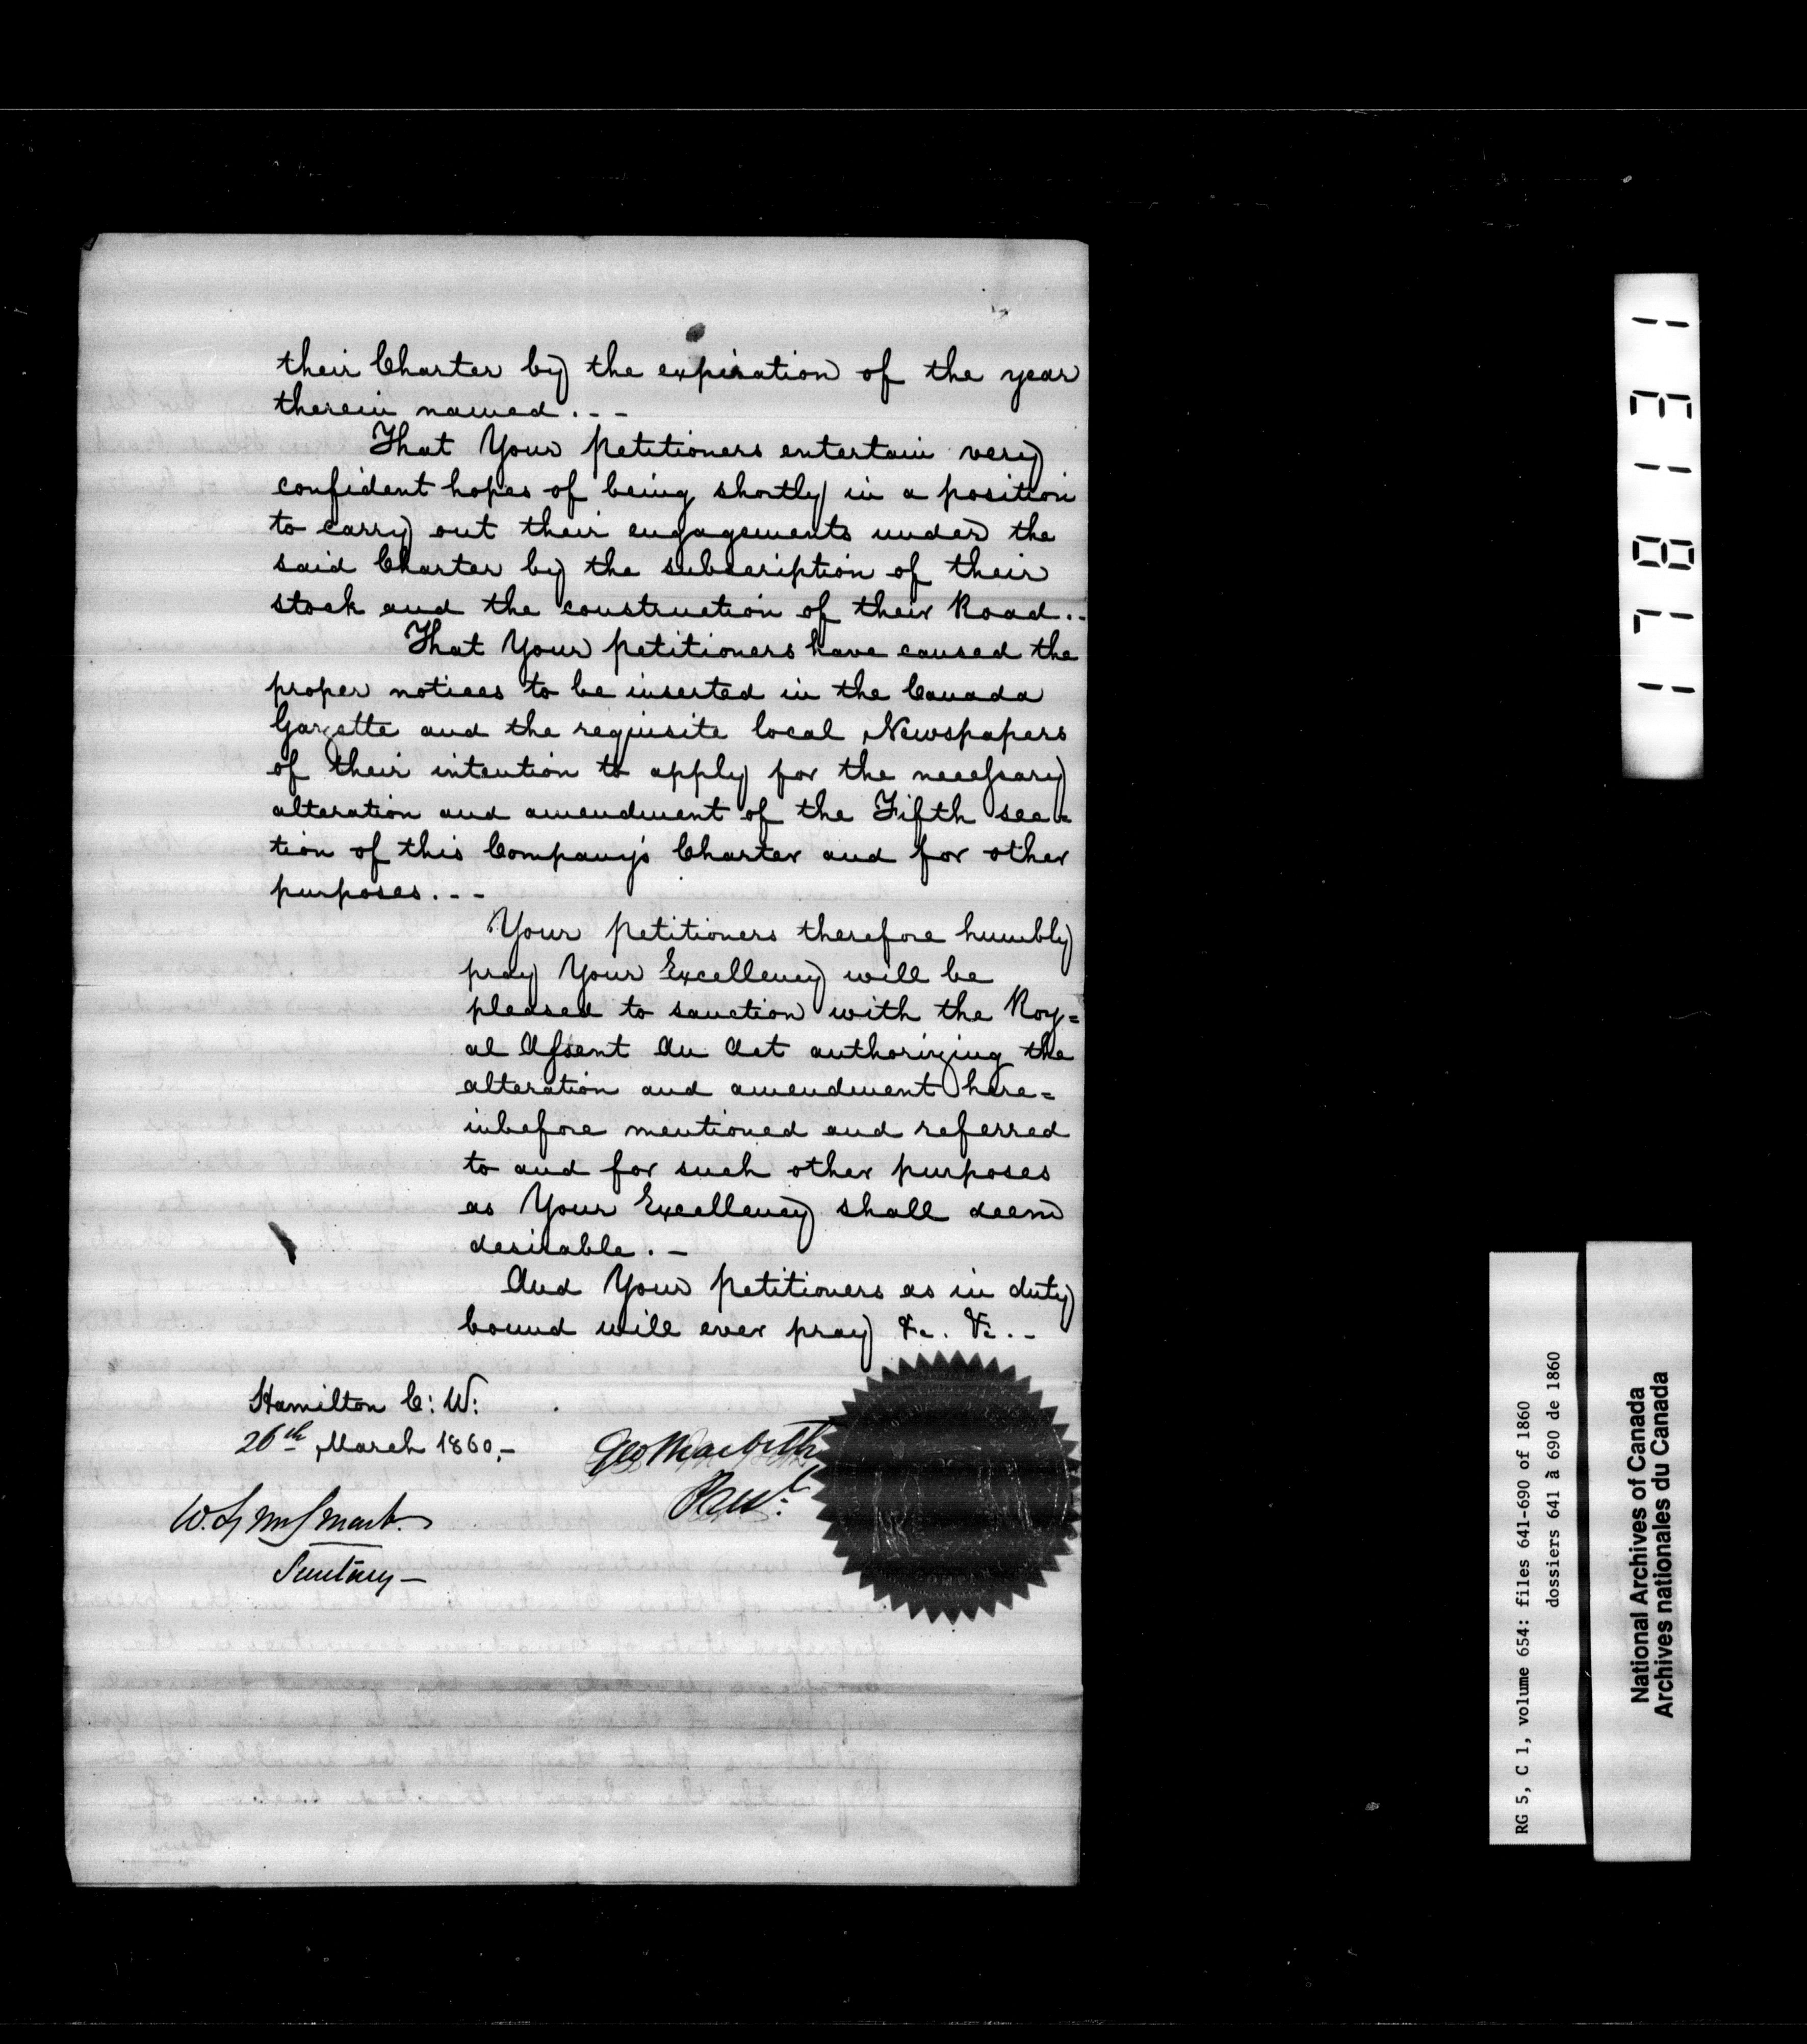 their Charter by the expiration of the year
therein named . - -
That Your petitioners entertain very
confident hopes of being shortly in a position
to carry out their engagements under the
said Charter by the subscription of their
stock and the construction of their Road . -
That Your petitioners have caused the
proper notices to be inserted in the Canada
Gazette and the requisite local Newspapers
of their intention to apply for the necessary
alteration and amendment of the Fifth sec=
tion of this Company's Charter and for other
purposes . - -
Your petitioners therefore humbly
pray Your Excellency will be
pleased to sanction with the Roy=
al Assent An Act authorizing the
alteration and amendment here=
inbefore mentioned and referred
to and for such other purposes
as Your Excellency shall deem
desirable . -
And Your petitioners as in duty
bound will ever pray &c. &c. -
Hamilton C: W:
26th March 1860, -
Geo Macbeth
Presdt.
Secretary -
COMPANY
1 3 1 8 7 1
RG 5, C 1, volume 654: files 641-690 of 1860
dossiers 641 à 690 de 1860
National Archives of Canada
Archives nationales du Canada